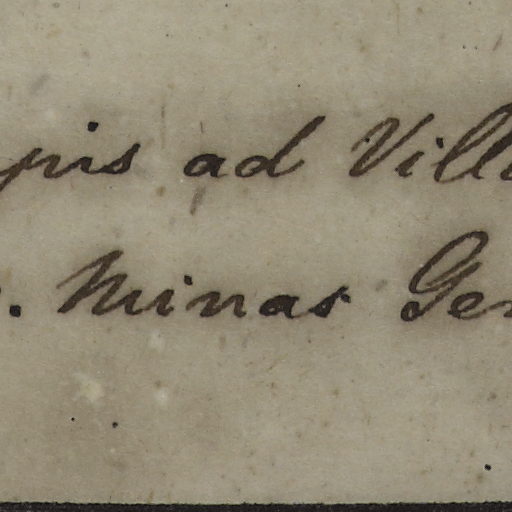 pis ad Vill
. Minas Ger